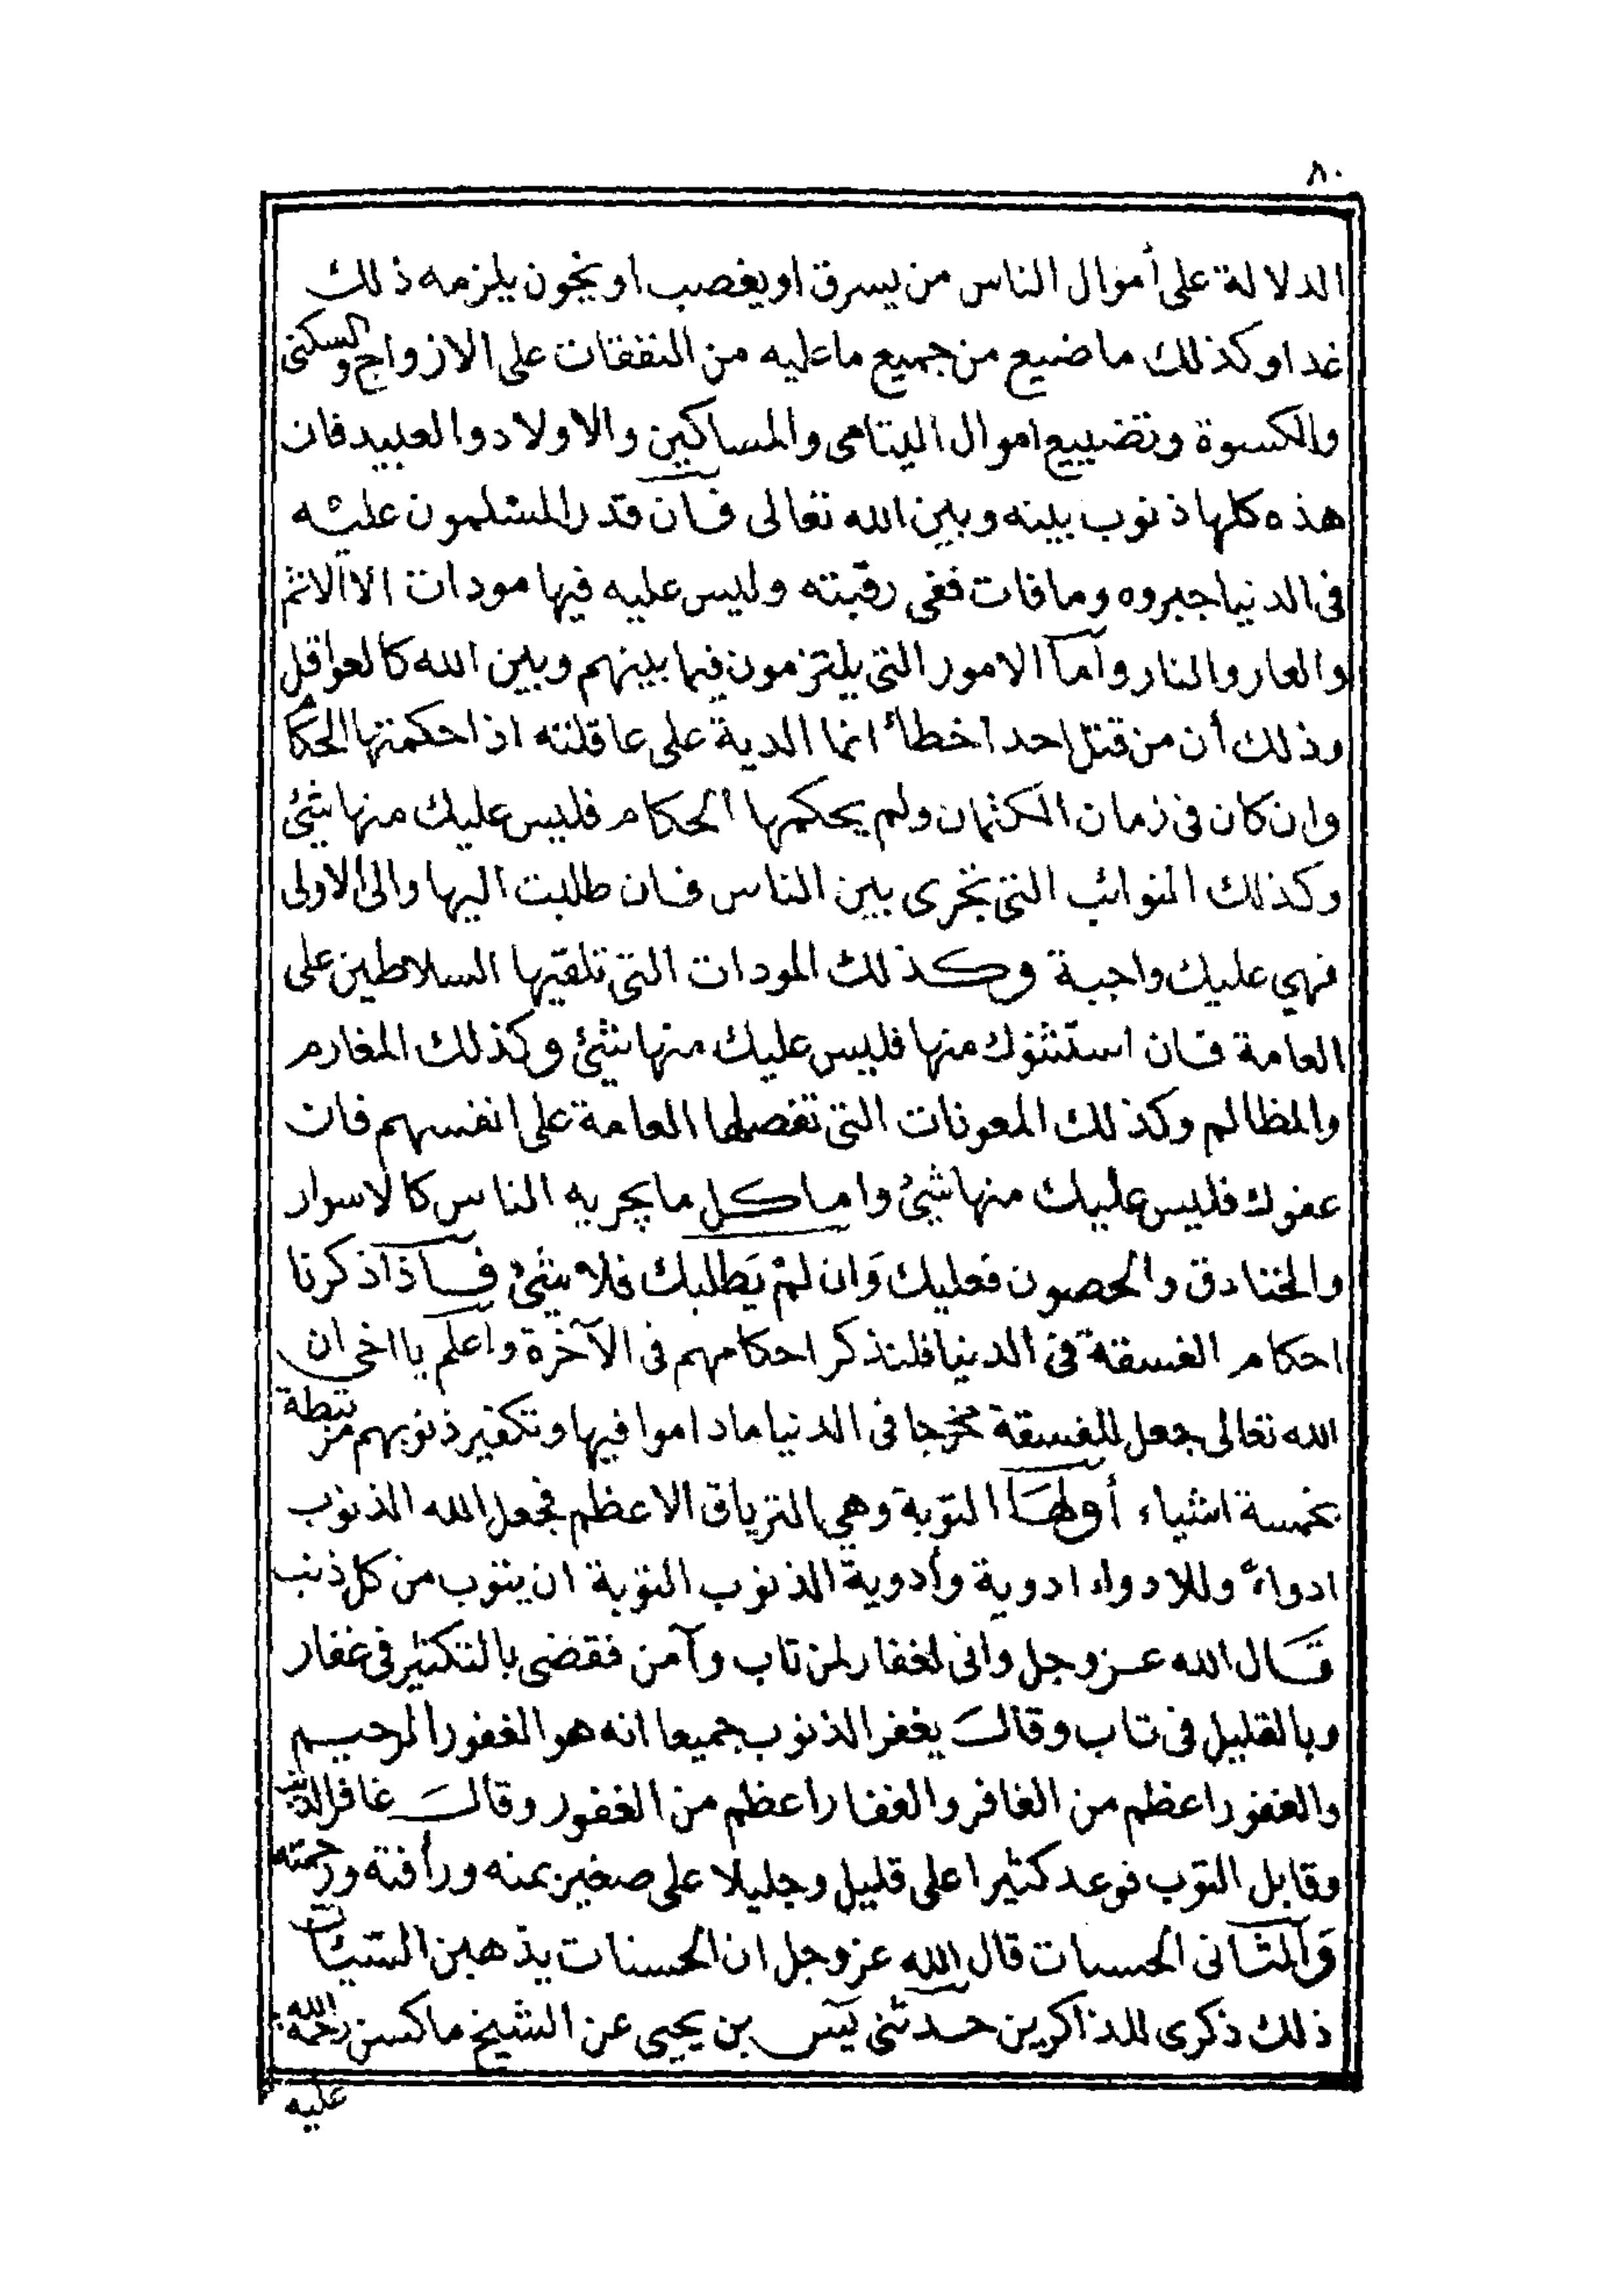 ٨٠
الدلالة على أموال الناس من يسرق او يغصب او يخون يلزمه ذلك
غدا وكذلك ما ضيع من جميع ما عليه من النفقات على الازواج والسكنى
والكسوة وتضييع اموال اليتامى والمساكين والاولاد والعبيد فان
هذه كلها ذنوب بينه وبين الله تعالى فان قدر المسلمون عليه
فى الدنيا جبروه وما فات ففى رقبته وليس عليه فيها مودات الا الاثم
والعار والنار وأما الامور التى يلتزمون فيما بينهم وبين الله كالعواقل
وذلك أن من قتل احدا خطأ انما الدية على عاقلته اذا حكمتها الحكام
وان كان فى زمان الكتمان ولم يحكمها الحكام فليس عليك منها شئ
وكذلك النوائب التى تجرى بين الناس فان طلبت اليها والى الاولى
فهي عليك واجبة وكذلك المودات التى تلقيها السلاطين على
العامة فان استثنوك منها فليس عليك منها شئ وكذلك المغارم
والمظالم وكذلك المعونات التى تفصلها العامة على انفسهم فان
عفوك فليس عليك منها شئ واما كل ما يجربه الناس كالاسوار
والخنادق والحصون فعليك وَان لمْ يَطلبك فلا شئ فاذا ذكرنا
احكام الفسقة فى الدنيا فلنذكر احكامهم فى الآخرة واعلم يا اخى ان
الله تعالى جعل للفسقة مخرجا فى الدنيا ماداموا فيها وتكفير ذنوبهم مرتبطة
بخمسة اشياء أولهَا التوبة وهي الترياق الاعظم فجعل الله الذنوب
ادواءً وللادواء ادوية وأدوية الذنوب التوبة ان يتوب من كل ذنب
قَال الله عز وجل وانى لغفار لمن تاب وآمن فقضى بالتكثير فى غفار
وبالقليل فى تاب وقالَ يغفر الذنوب جميعا انه هو الغفور الرحيم
والغفور اعظم من الغافر والغفار اعظم من الغفور وقالَ غافر الذنب
وقابل التوب فوعد كثيرا على قليل وجليلا على صغير بمنه ورأفته ورحمته
وَالثانى الحسنات قال الله عز وجل ان الحسنات يذهبن السيئات
ذلك ذكرى للذاكرين حدثنى يَس بن يحيى عن الشيخ ماكسن رحمة الله
عليه